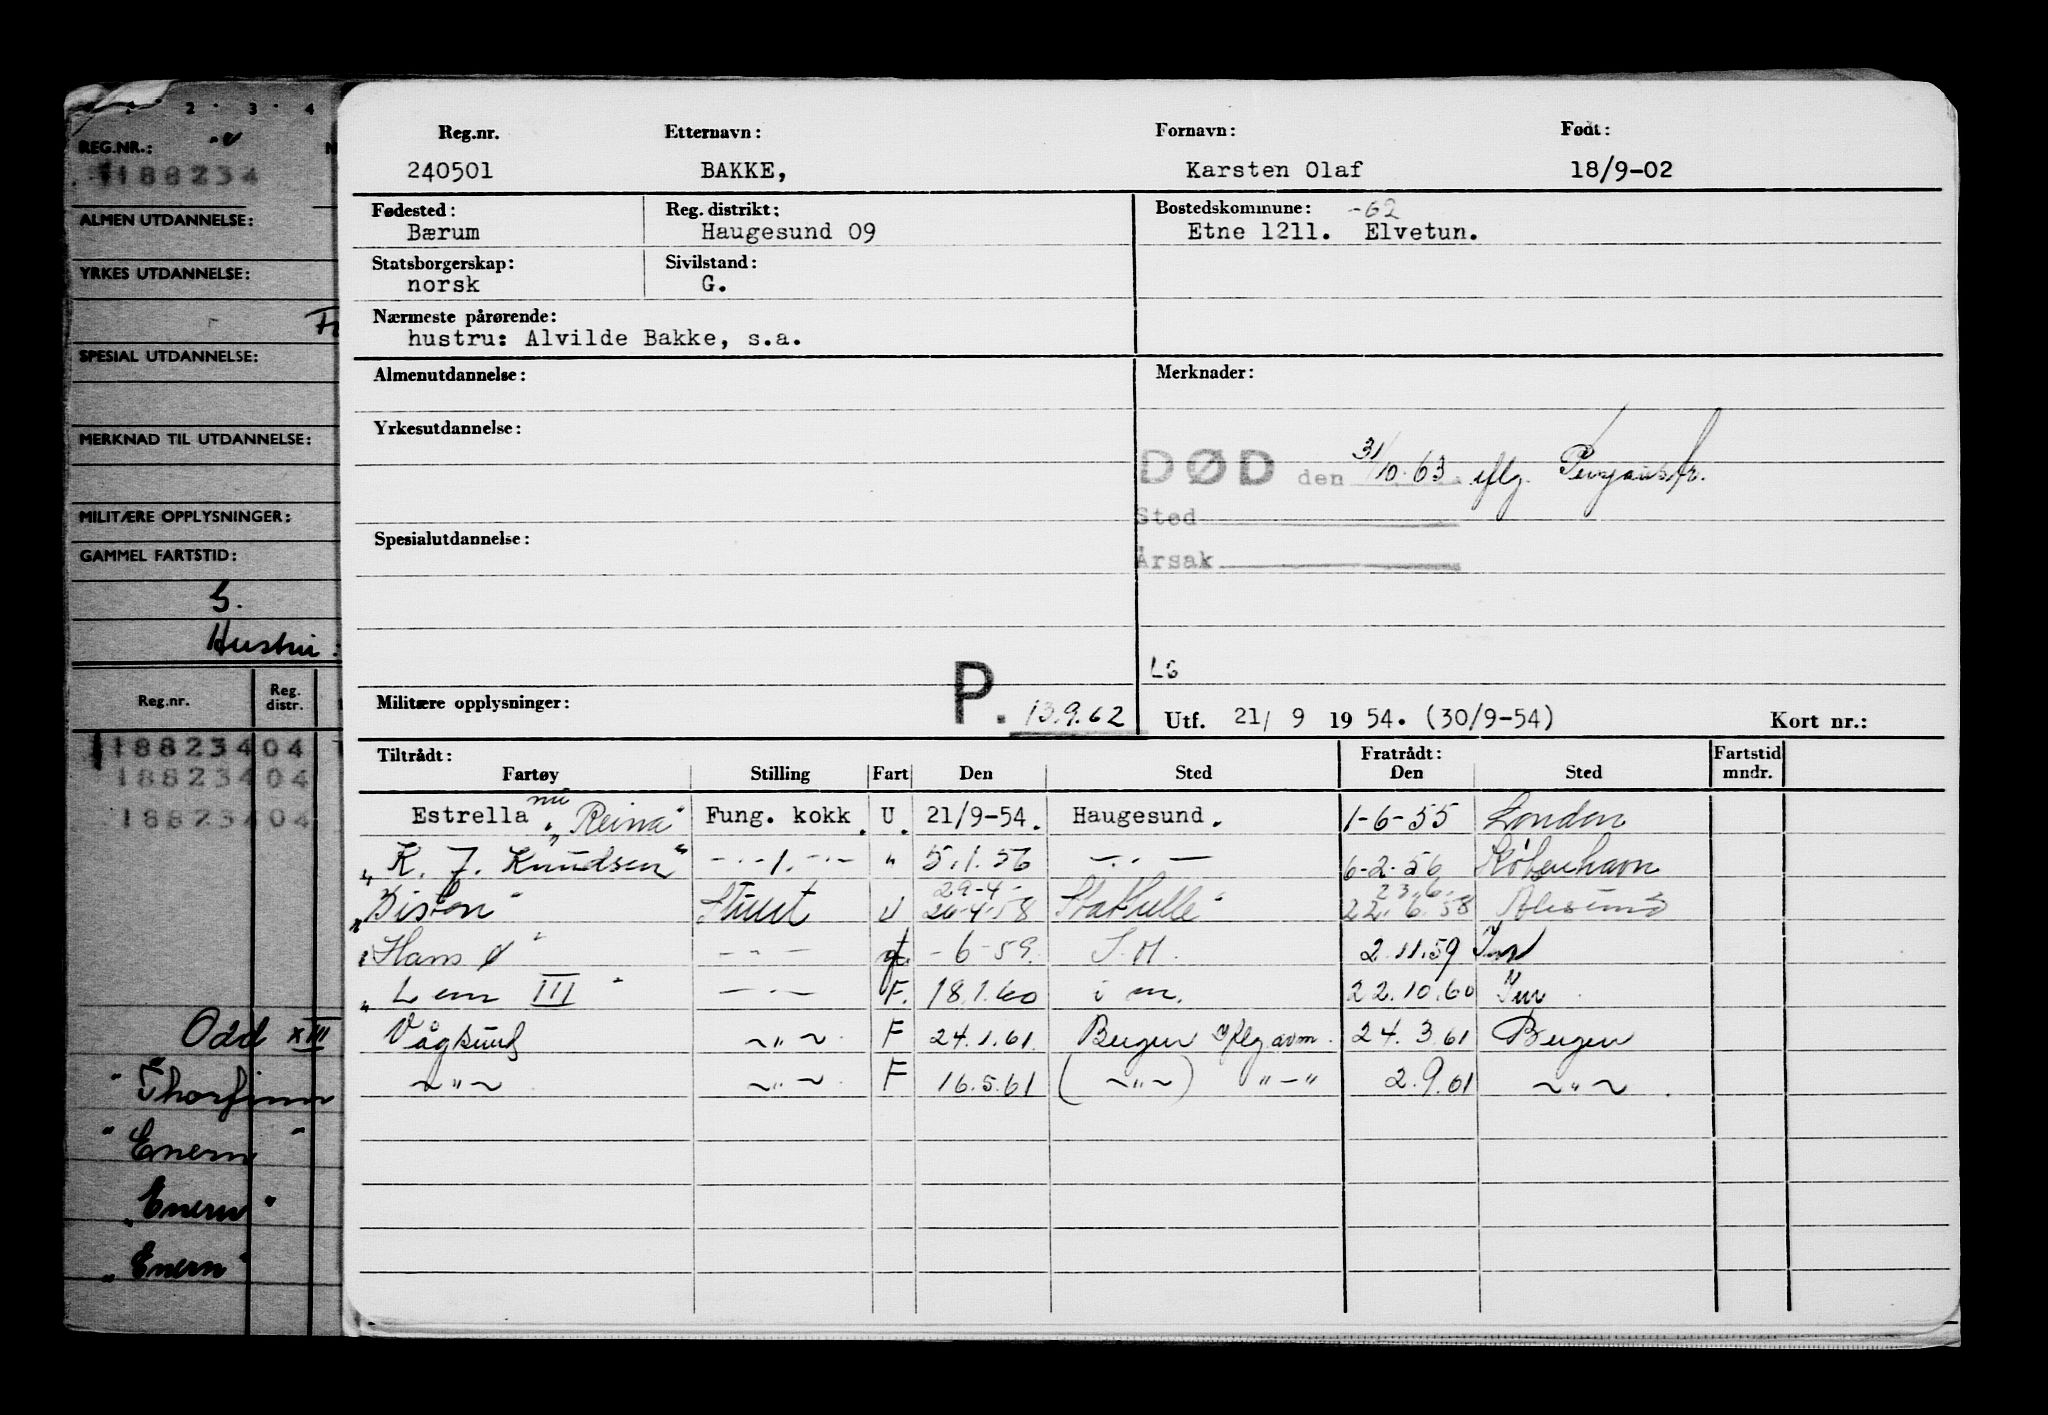 1 · 2 · 3 · 4
REG.NR.:
188234
ALMEN UTDANNELSE:
YRKES UTDANNELSE:
SPESIAL UTDANNELSE:
MERKNAD TIL UTDANNELSE:
MILITÆRE OPPLYSNINGER:
GAMMEL FARTSTID:
G.
Hustru:
Reg.nr. Reg. distr.
188234 04
188234 04
188234 04
Odd XIII
"Thorfinn
"Enern"
"Enern"
"Enern"
Reg.nr. Etternavn: Fornavn: Født:
240501 BAKKE, Karsten Olaf 18/9-02
Fødested: Reg. distrikt: Bostedskommune: -62
Bærum Haugesund 09 Etne 1211. Elvetun.
Statsborgerskap: Sivilstand:
norsk G.
Nærmeste pårørende:
hustru: Alvilde Bakke, s.a.
Almenutdannelse: Merknader:
Yrkesutdannelse:
DØD den 31/10.63 iflg.
Sted
Spesialutdannelse:
Årsak
LG
Militære opplysninger: P. 13.9.62 Utf. 21/ 9 19 54. (30/9-54) Kort nr.:
Tiltrådt: Fratrådt: Fartstid
Fartøy Stilling Fart Den Sted Den Sted mndr.
Estrella nu "Reina" Fung. kokk. U. 21/9-54. Haugesund. 1-6-55 London
"K. J. Knudsen" -.-1.-.- " 5.1.56 -..- 6-2-56 København
29-4- 23.6.
"Biston" Stuert U 26-4-58 Stathelle 22.6.58 Ålesund
"Hans Ø" - - - - 6-59. I.M. 2.11.59
"Lem III" -.- F. 18.1.60 i m. 22.10.60
Vågsund ~"~ F 24.1.61. Bergen iflg avm. 24.3.61 Bergen
~"~ ~"~ F 16.5.61 (~"~) "-" 2.9.61 ~"~